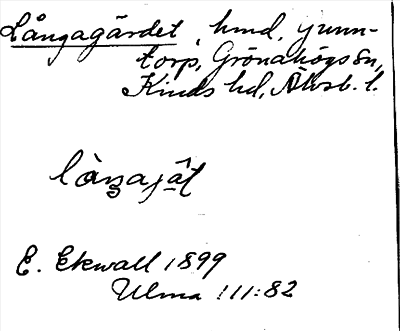 Långagärdet, hmd, Gunn-
torp, Grönahögs sn,
Kinds hd, Älvsb. l.
E. Ekwall 1899
Ulma 111:82